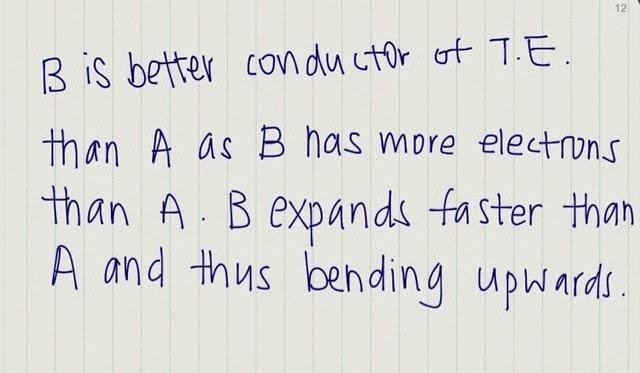 12
B is better conductor of T.E.
than A as B has more electrons
than A. B expands faster than
A and thus bending upwards.